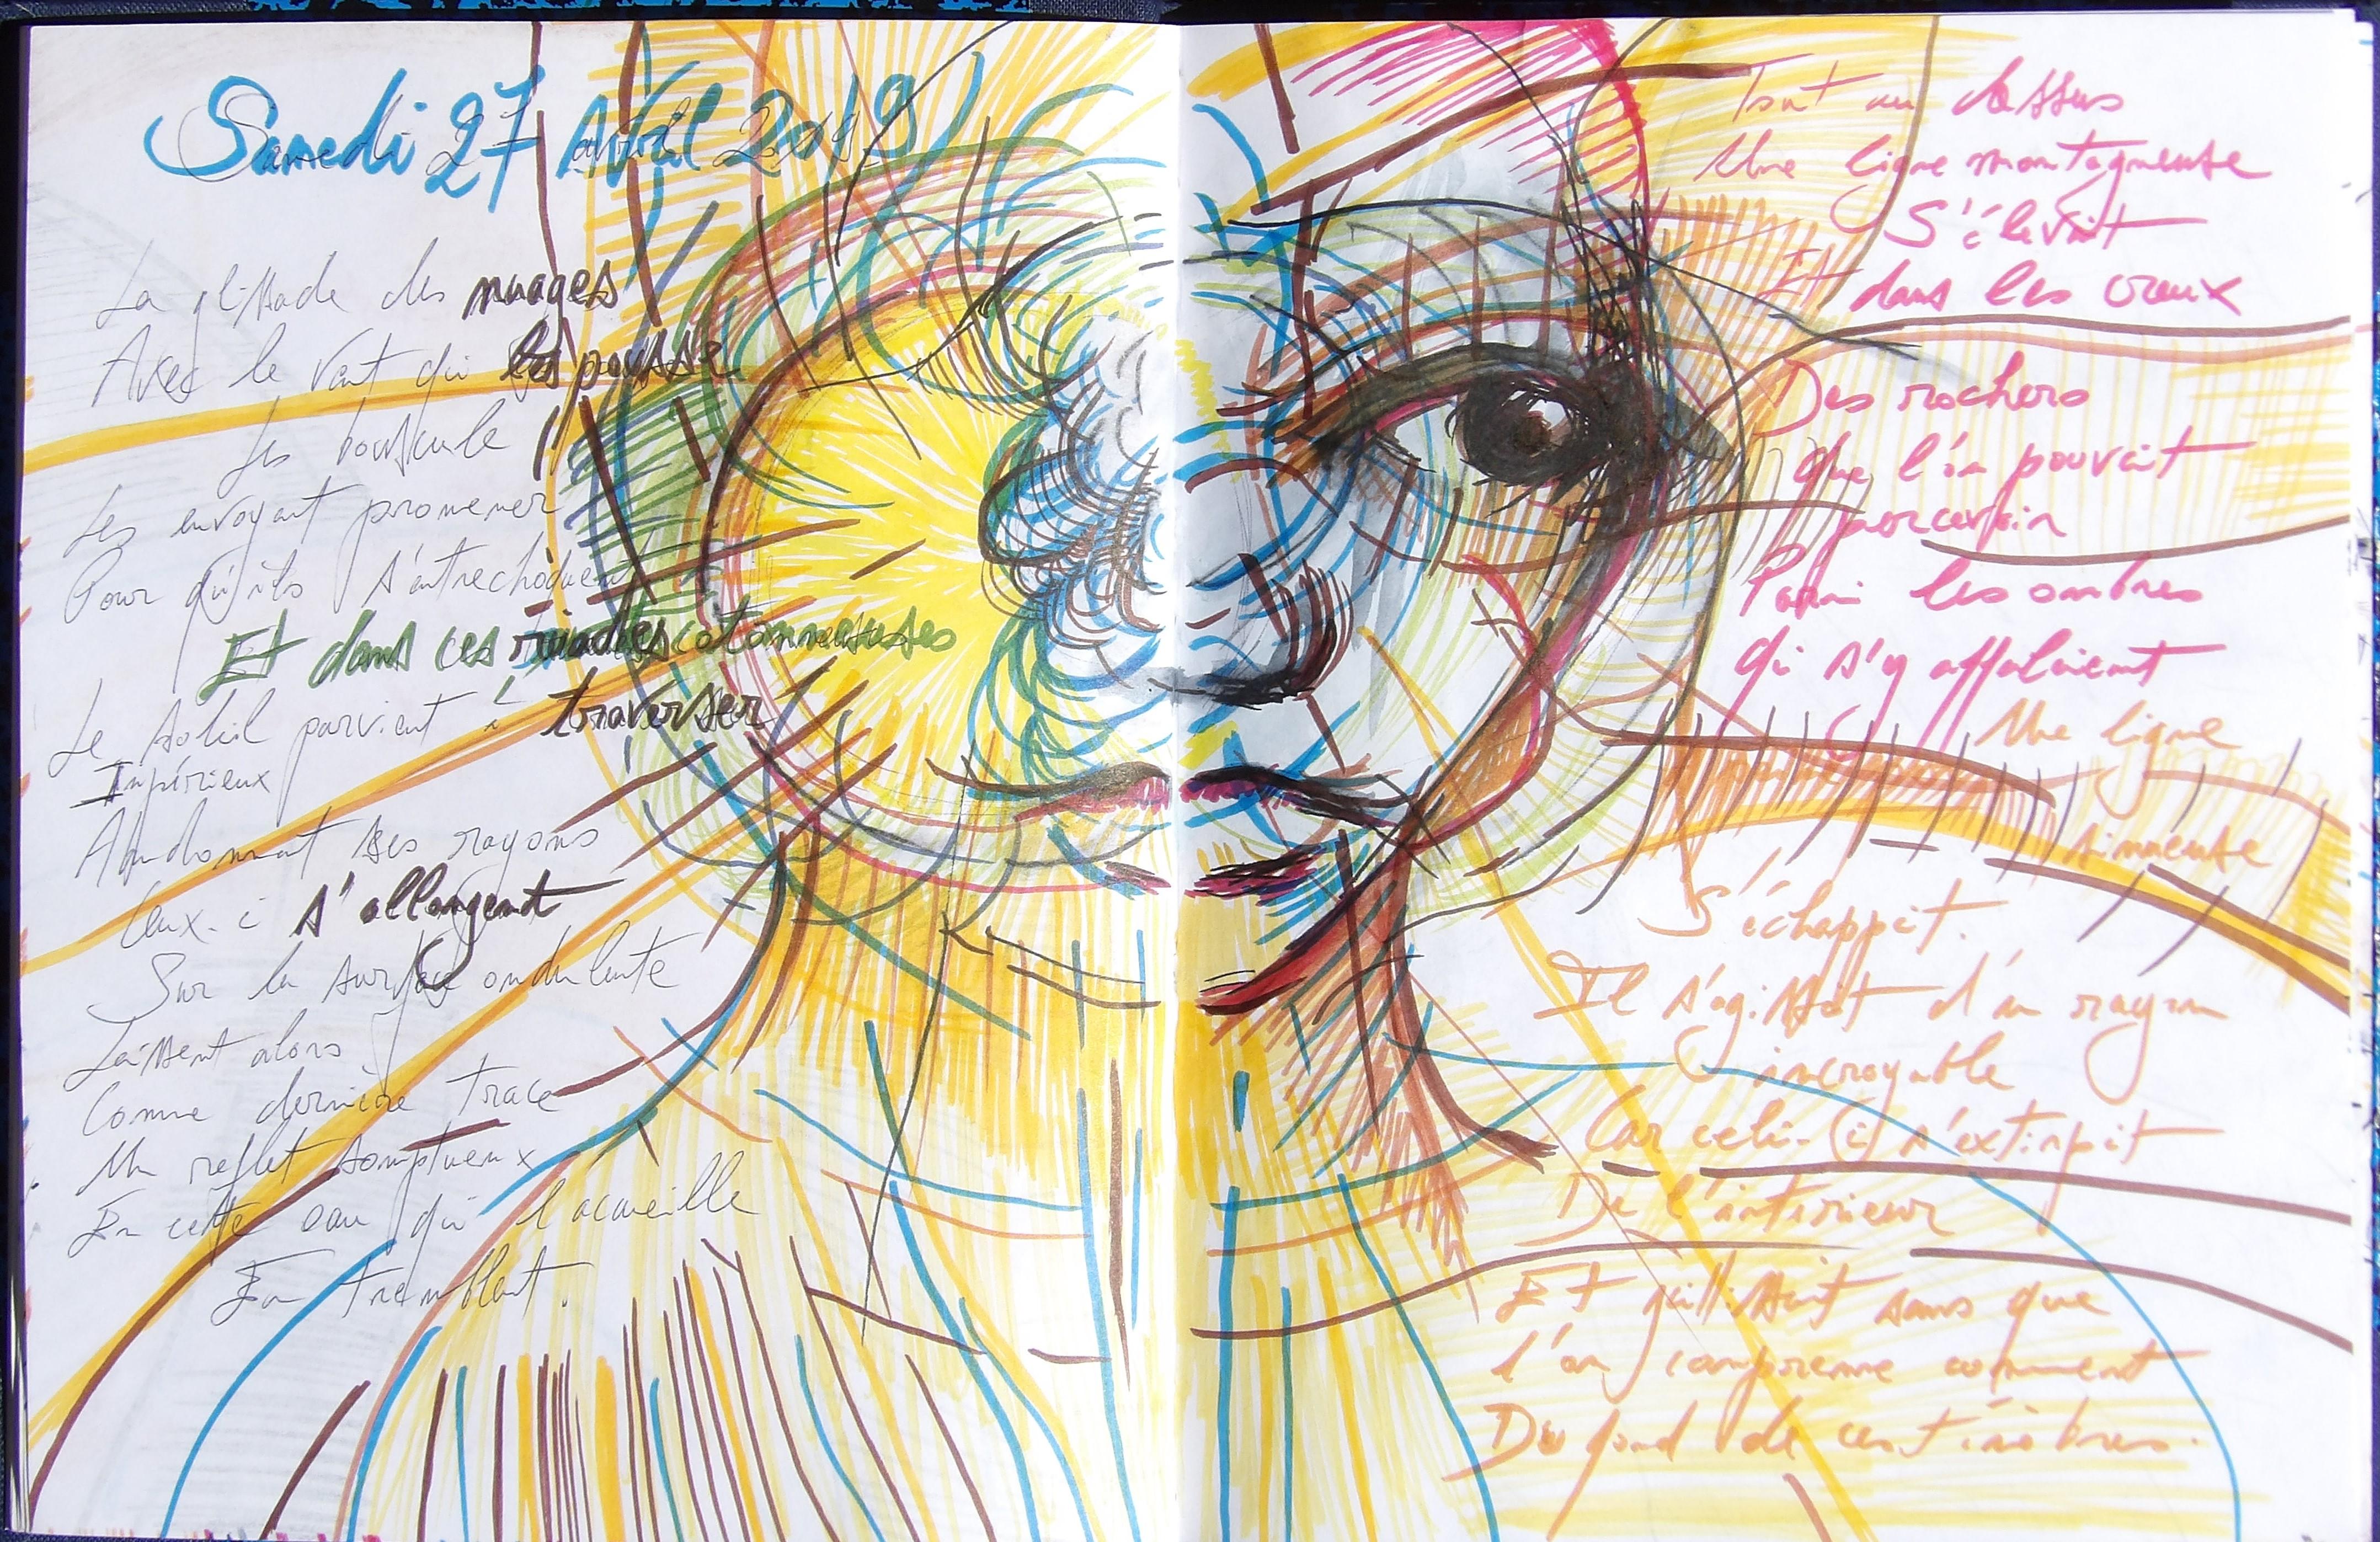 Samedi 27 Avril 2019
La glissade des nuages
Avec le vent qui les pousse
Les bouscule
Les envoyant promener
Pour qu'ils s'entrechoquent
Et dans ces cotonneuses
Le soleil parvient à traverser
Impérieux
Abandonnant ses rayons
Ceux-ci s'allongent
Sur la surface ondulante
Laissent alors
Comme dernière trace
Un reflet somptueux
En cette eau qui l'acaueille
En tremblant.
Tout au dessus
Une ligne montagneuse
S'élevait
Et dans les creux
Des rochers
Que l'on pouvait
percevoir
Parmi les ombres
Qui s'y affalaient
Une ligne
sinueuse
S'échappait.
Il s'agissait d'un rayon
incroyable
Car celui-ci s'extirpait
De l'intérieur
Et jaillissait sans que
l'on comprenne comment
Du fond de ces ténèbres.